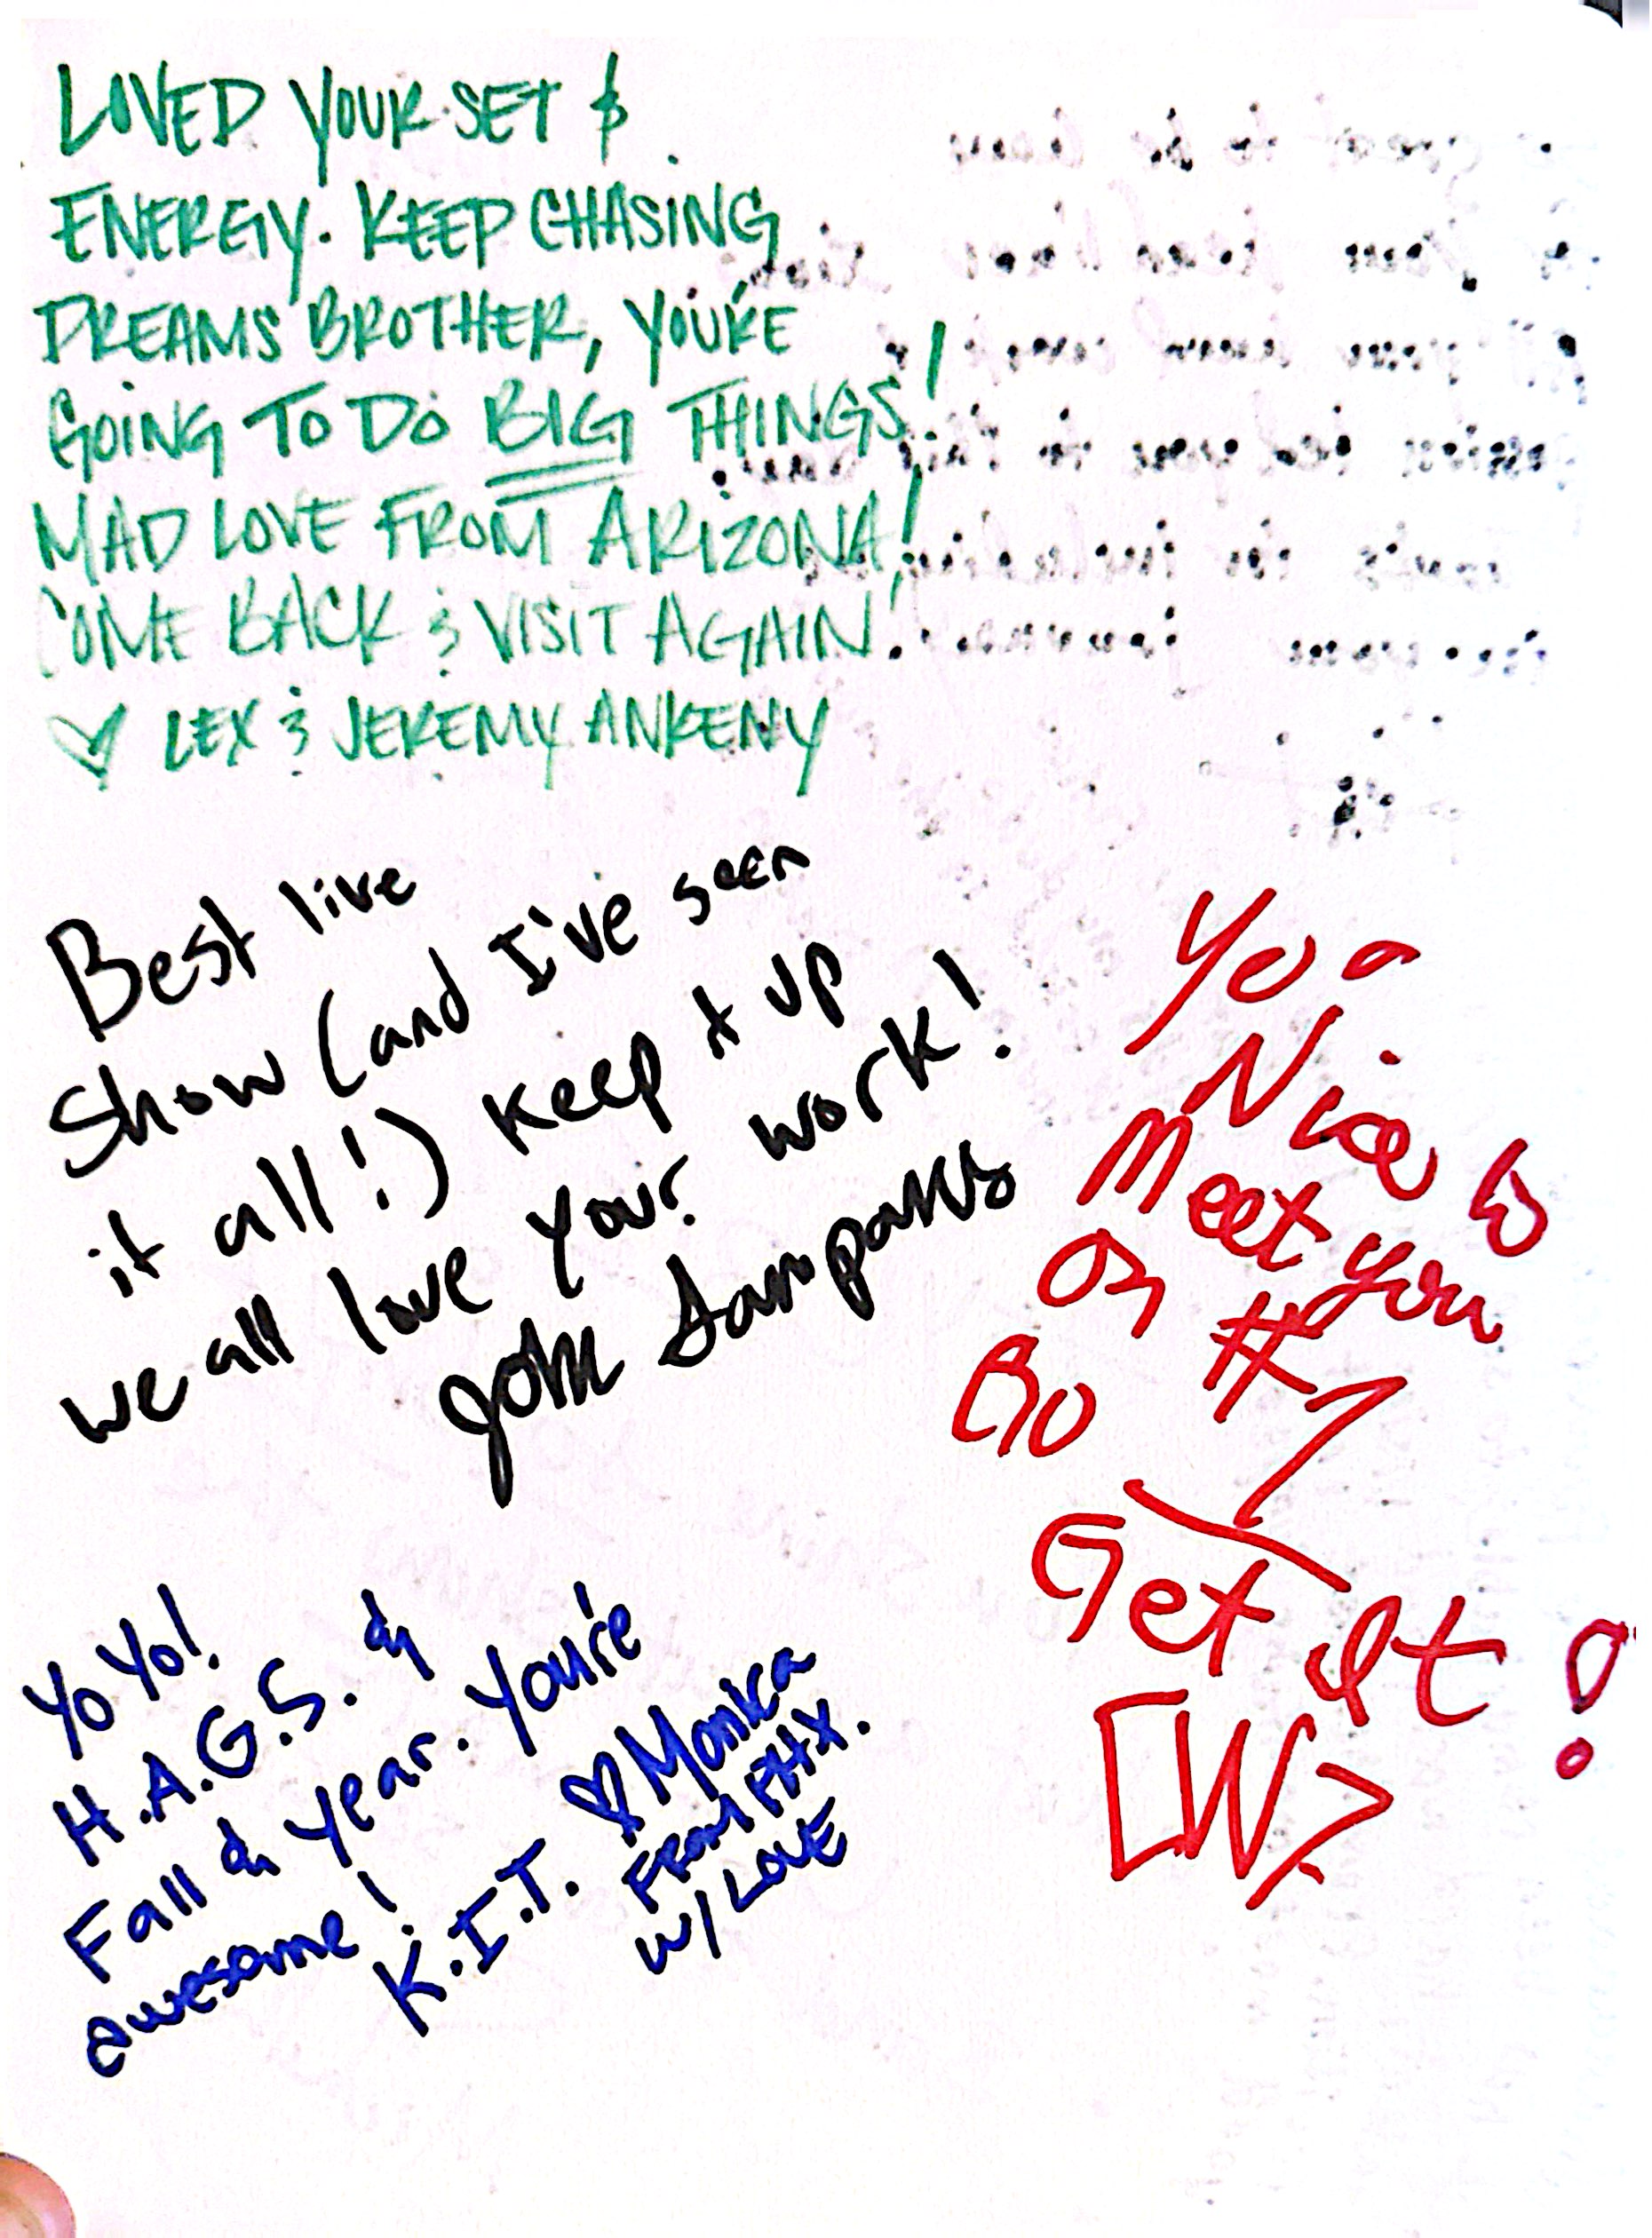 LOVED YOUR SET &
ENERGY. KEEP CHASING
DREAMS BROTHER, YOU'RE
GOING TO DO BIG THINGS!
MAD LOVE FROM ARIZONA!
COME BACK & VISIT AGAIN!
♡ LEX & JEREMY ANKENY
Best live
Show (and I've seen
it all!) Keep it up
we all love your work!
John
Yo
Nice to
Meet you
on #1
Get it!
[W>
Yo Yo!
H.A.G.S. &
Fall & year. You're
awesome!
K.I.T. ♡ Monika
FROM PHX.
W/ LOVE